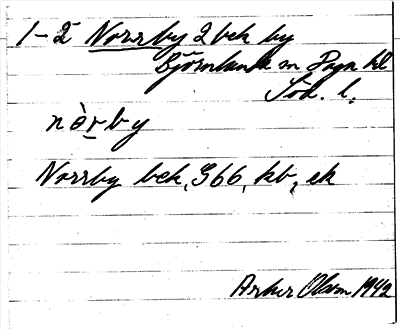 1-2 Norrby 2 bek by
Björnlunda sn Daga hd
Söd. l.
nòrby
Norrby bek, G66, kb, ek
Artur Olson 1942